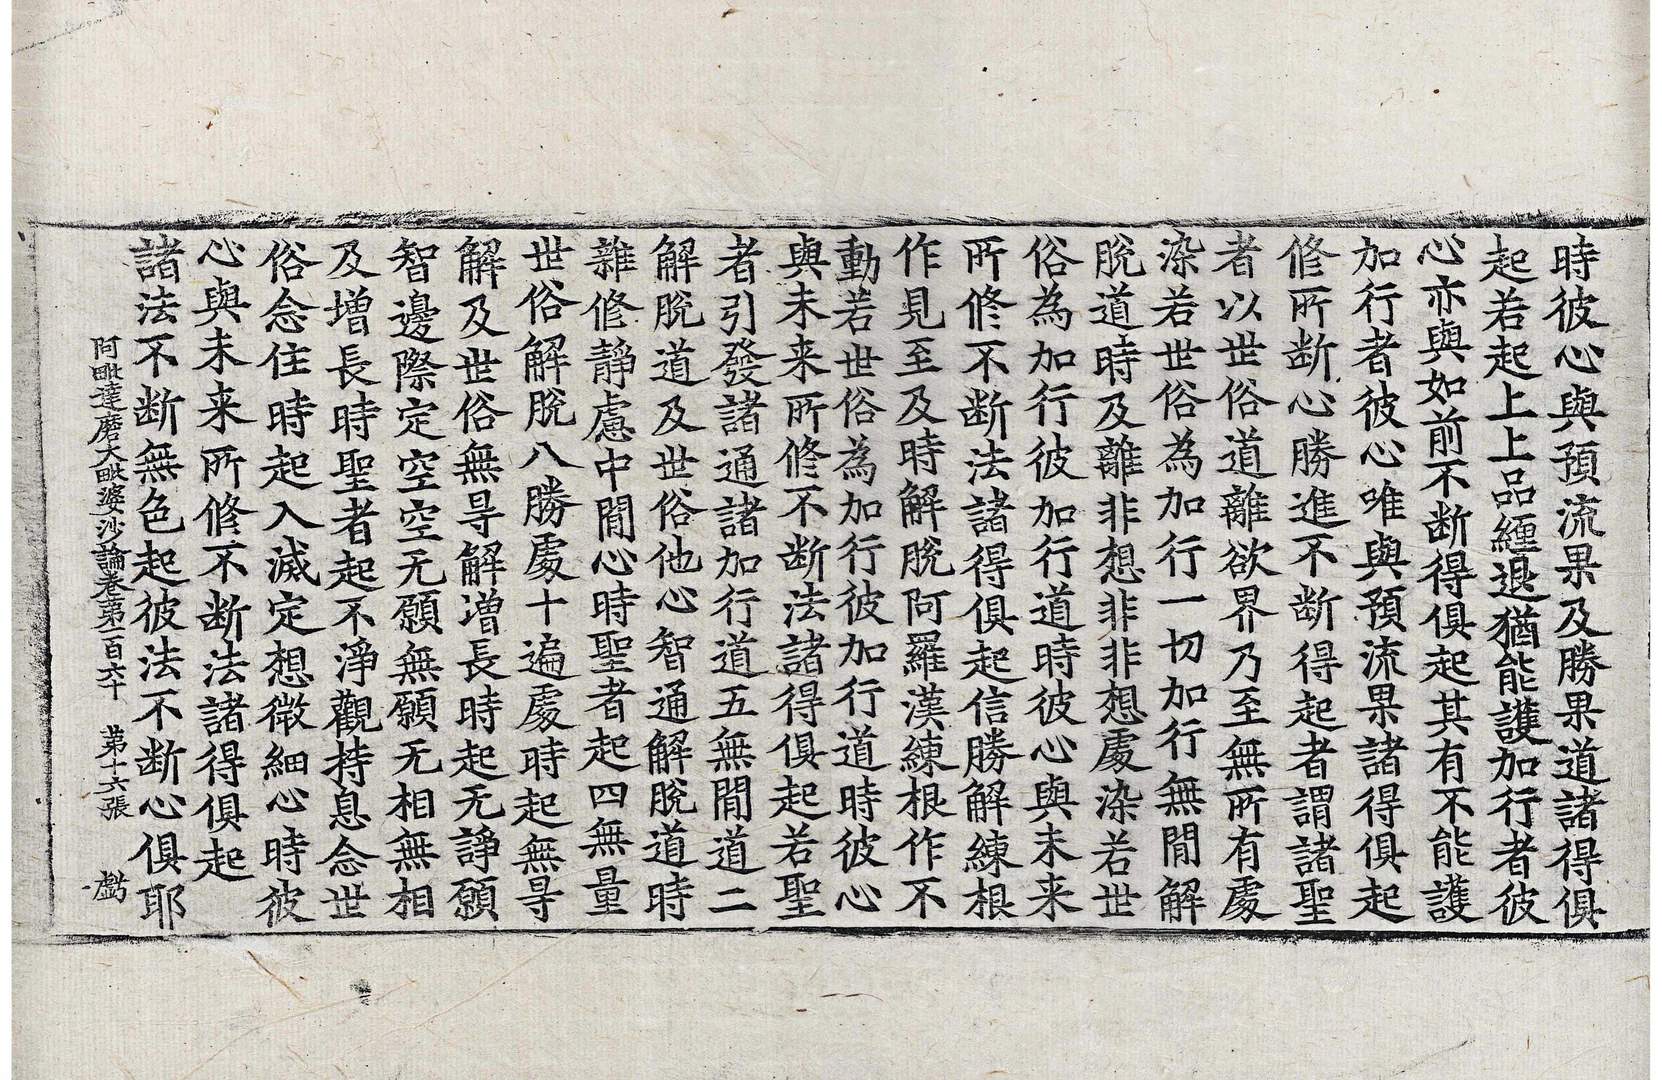 時彼心與預流果及勝果道諸得俱
起若起上上品纏退猶能護加行者彼
心亦與如前不断得俱起其有不能護
加行者彼心唯與預流果諸得俱起
修所断心勝進不断得起者謂諸聖
者以世俗道離欲界乃至無所有處
染若世俗為加行一切加行無閒解
脫道時及離非想非非想處染若世
俗為加行彼加行道時彼心與未来
所修不断法諸得俱起信勝解練根
作見至及時解脫阿羅漢練根作不
動若世俗為加行彼加行道時彼心
與未来所修不断法諸得俱起若聖
者引發諸通諸加行道五無閒道二
解脫道及世俗他心智通解脫道時
雜修靜慮中閒心時聖者起四無量
世俗解脫八勝處十遍處時起無㝵
解及世俗無㝵解増長時起无諍願
智邊際定空空无願無願无相無相
及増長時聖者起不淨觀持息念世
俗念住時起入滅定想微細心時彼
心與未来所修不断法諸得俱起
諸法不断無色起彼法不断心俱耶
阿毗達磨大毗婆沙論卷第一百六十　第十六張　戱